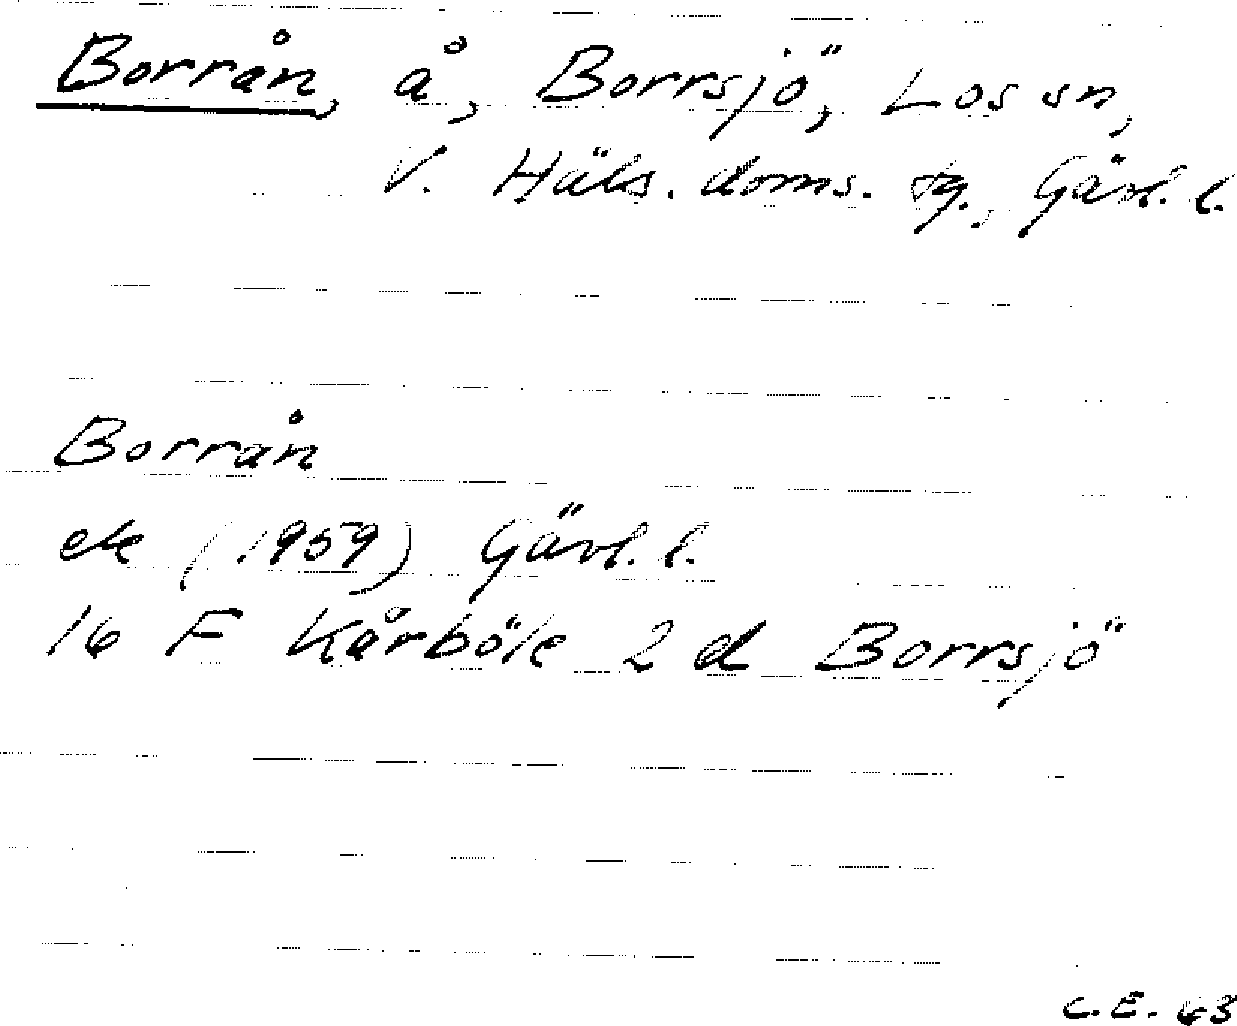 Borrån, å, Borrsjö, Los sn,
V. Häls. doms. tg., Gävl. l.
Borrån
ek (1959) Gävl. l.
16 F Kårböle 2 d Borrsjö
C.E. 63